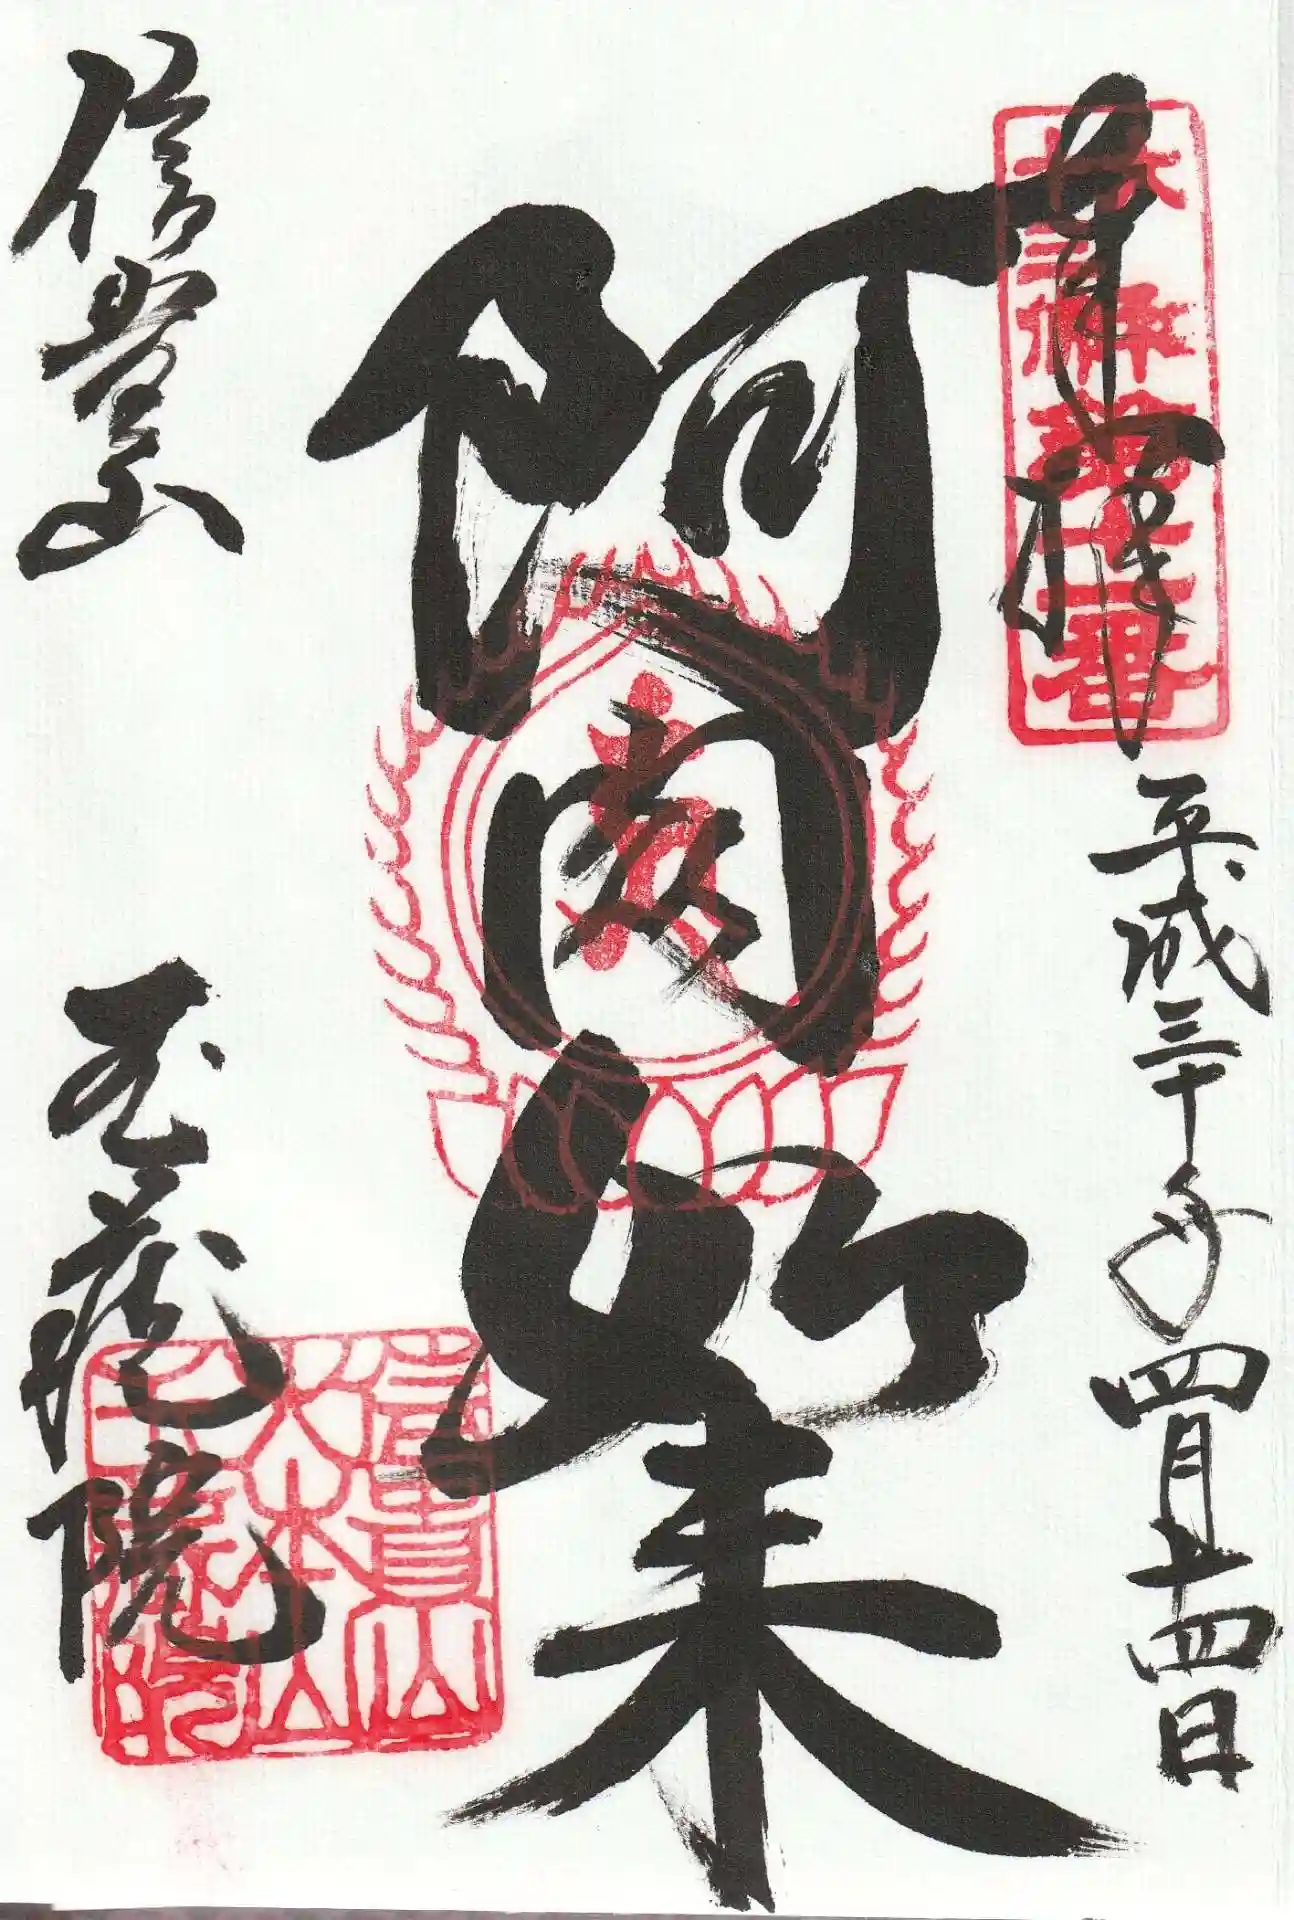 奉拝
平成三十年四月十四日
阿閦如来
信貴山
玉蔵院
信貴山
大本山
玉蔵院